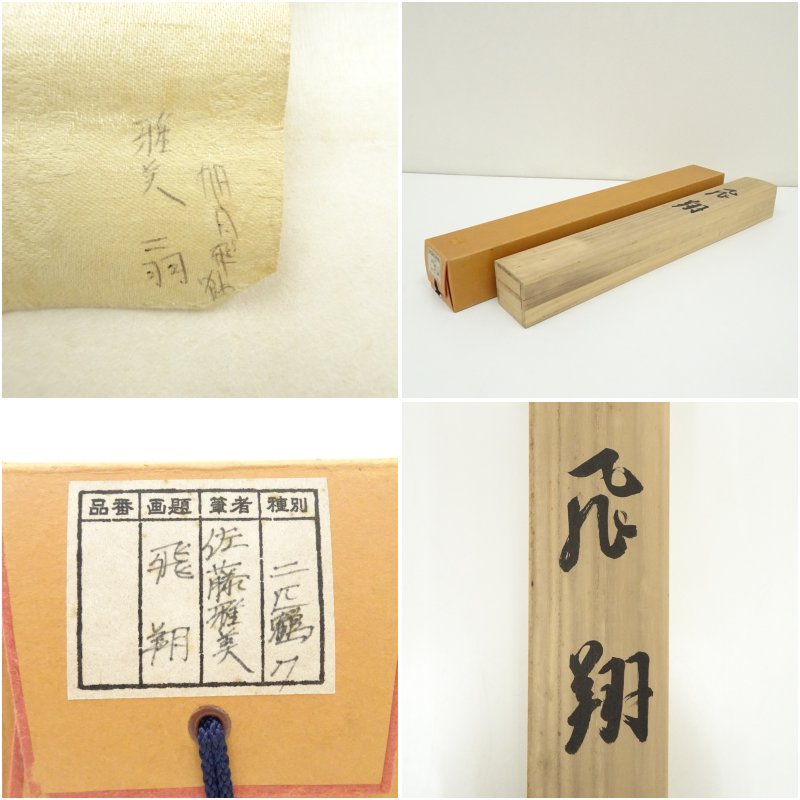 雅美
二羽
旭日飛翔
飛翔
種別
筆者
画題
品番
二匹鶴
佐藤雅美
飛翔
飛翔